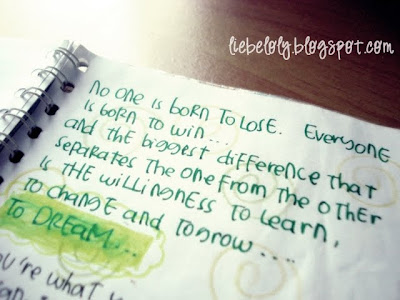 liebeloly.blogspot.com
NO ONE IS bORN TO LOSE. EVERYONE
IS bORN TO WIN...
and THE bIGGEST dIFFERENCE THAT
SEPARATES THE ONE FROM THE OTHER
IS THE WILLINGNESS TO LEARN,
TO CHANGE and TO GROW....
TO DREAM...
YOU'RE WHAT